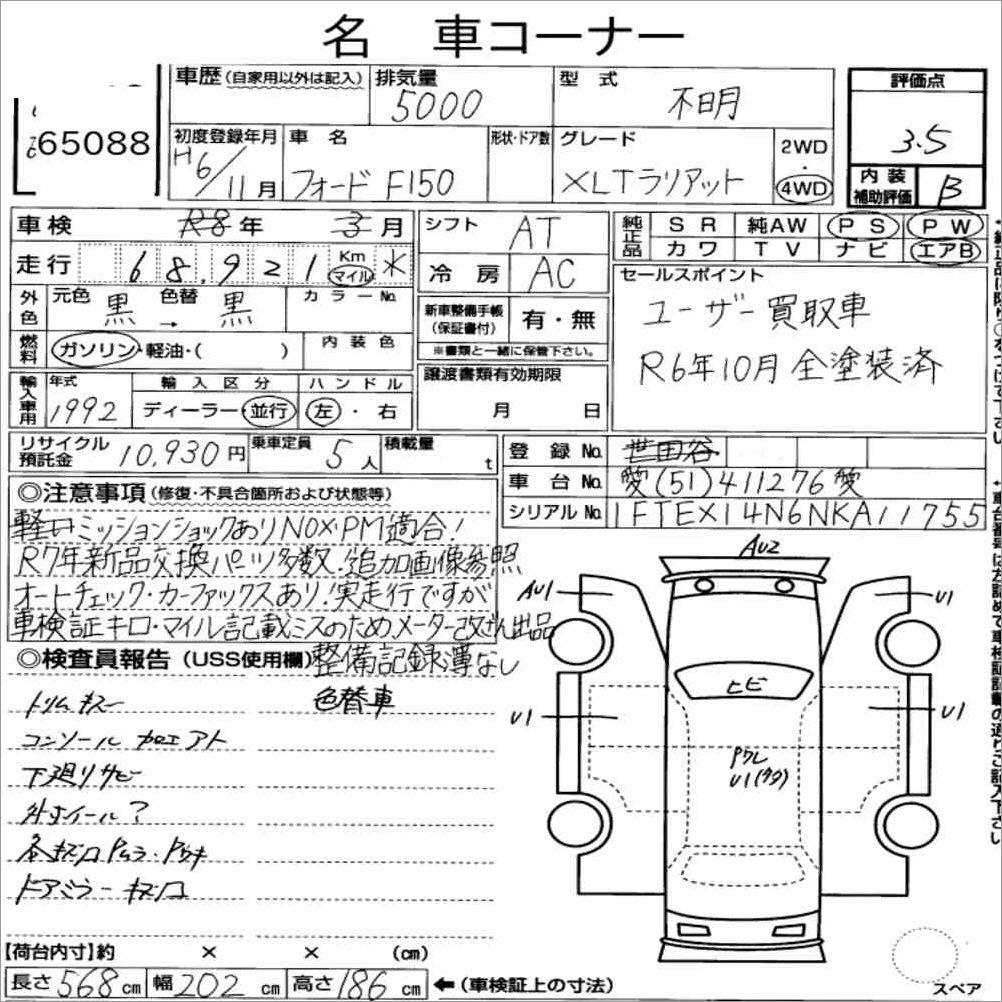 名 車コーナー
65088
車歴(自家用以外は記入)
排気量
5000
型式
不明
評価点
3.5
初度登録年月
H6/11月
車名
フォード F150
形状・ドア数
グレード
XLTラリアット
2WD
・
4WD
内装
補助評価
B
車検
R8年 3月
シフト
AT
純正品
SR
純AW
PS
PW
カワ
TV
ナビ
エアB
走行
68,921
Km
マイル
*
冷房
AC
セールスポイント
ユーザー買取車
R6年10月 全塗装済
外色
元色
黒
→
色替
黒
カラーNo.
新車整備手帳
(保証書付)
有・無
※書類と一緒に保管下さい。
燃料
ガソリン・軽油・( )
内装色
譲渡書類有効期限
月 日
輸入車用
年式
1992
輸入区分
ディーラー・並行
ハンドル
左・右
リサイクル
預託金
10,930円
乗車定員
5人
積載量
t
登録No.
世田谷
車台No.
愛(51)411276愛
シリアルNo.
1FTEX14N6NKA11755
◎注意事項(修復・不具合箇所および状態等)
軽ロミッションショックあり NOX・PM適合!
R7年新品交換パーツ多数!追加画像参照
オートチェック・カーファックスあり!実走行ですが
車検証キロ・マイル記載ミスのためメーター改ざん出品
整備記録簿なし
◎検査員報告(USS使用欄)
色替車
トリムキズ
コンソール加工アト
下廻りサビ
外ホイール?
ドアミラーキズ凹
AU2
AU1
U1
ヒビ
U1
U1
【荷台内寸】約 × × (cm)
長さ568cm
幅202cm
高さ186cm
←(車検証上の寸法)
スペア